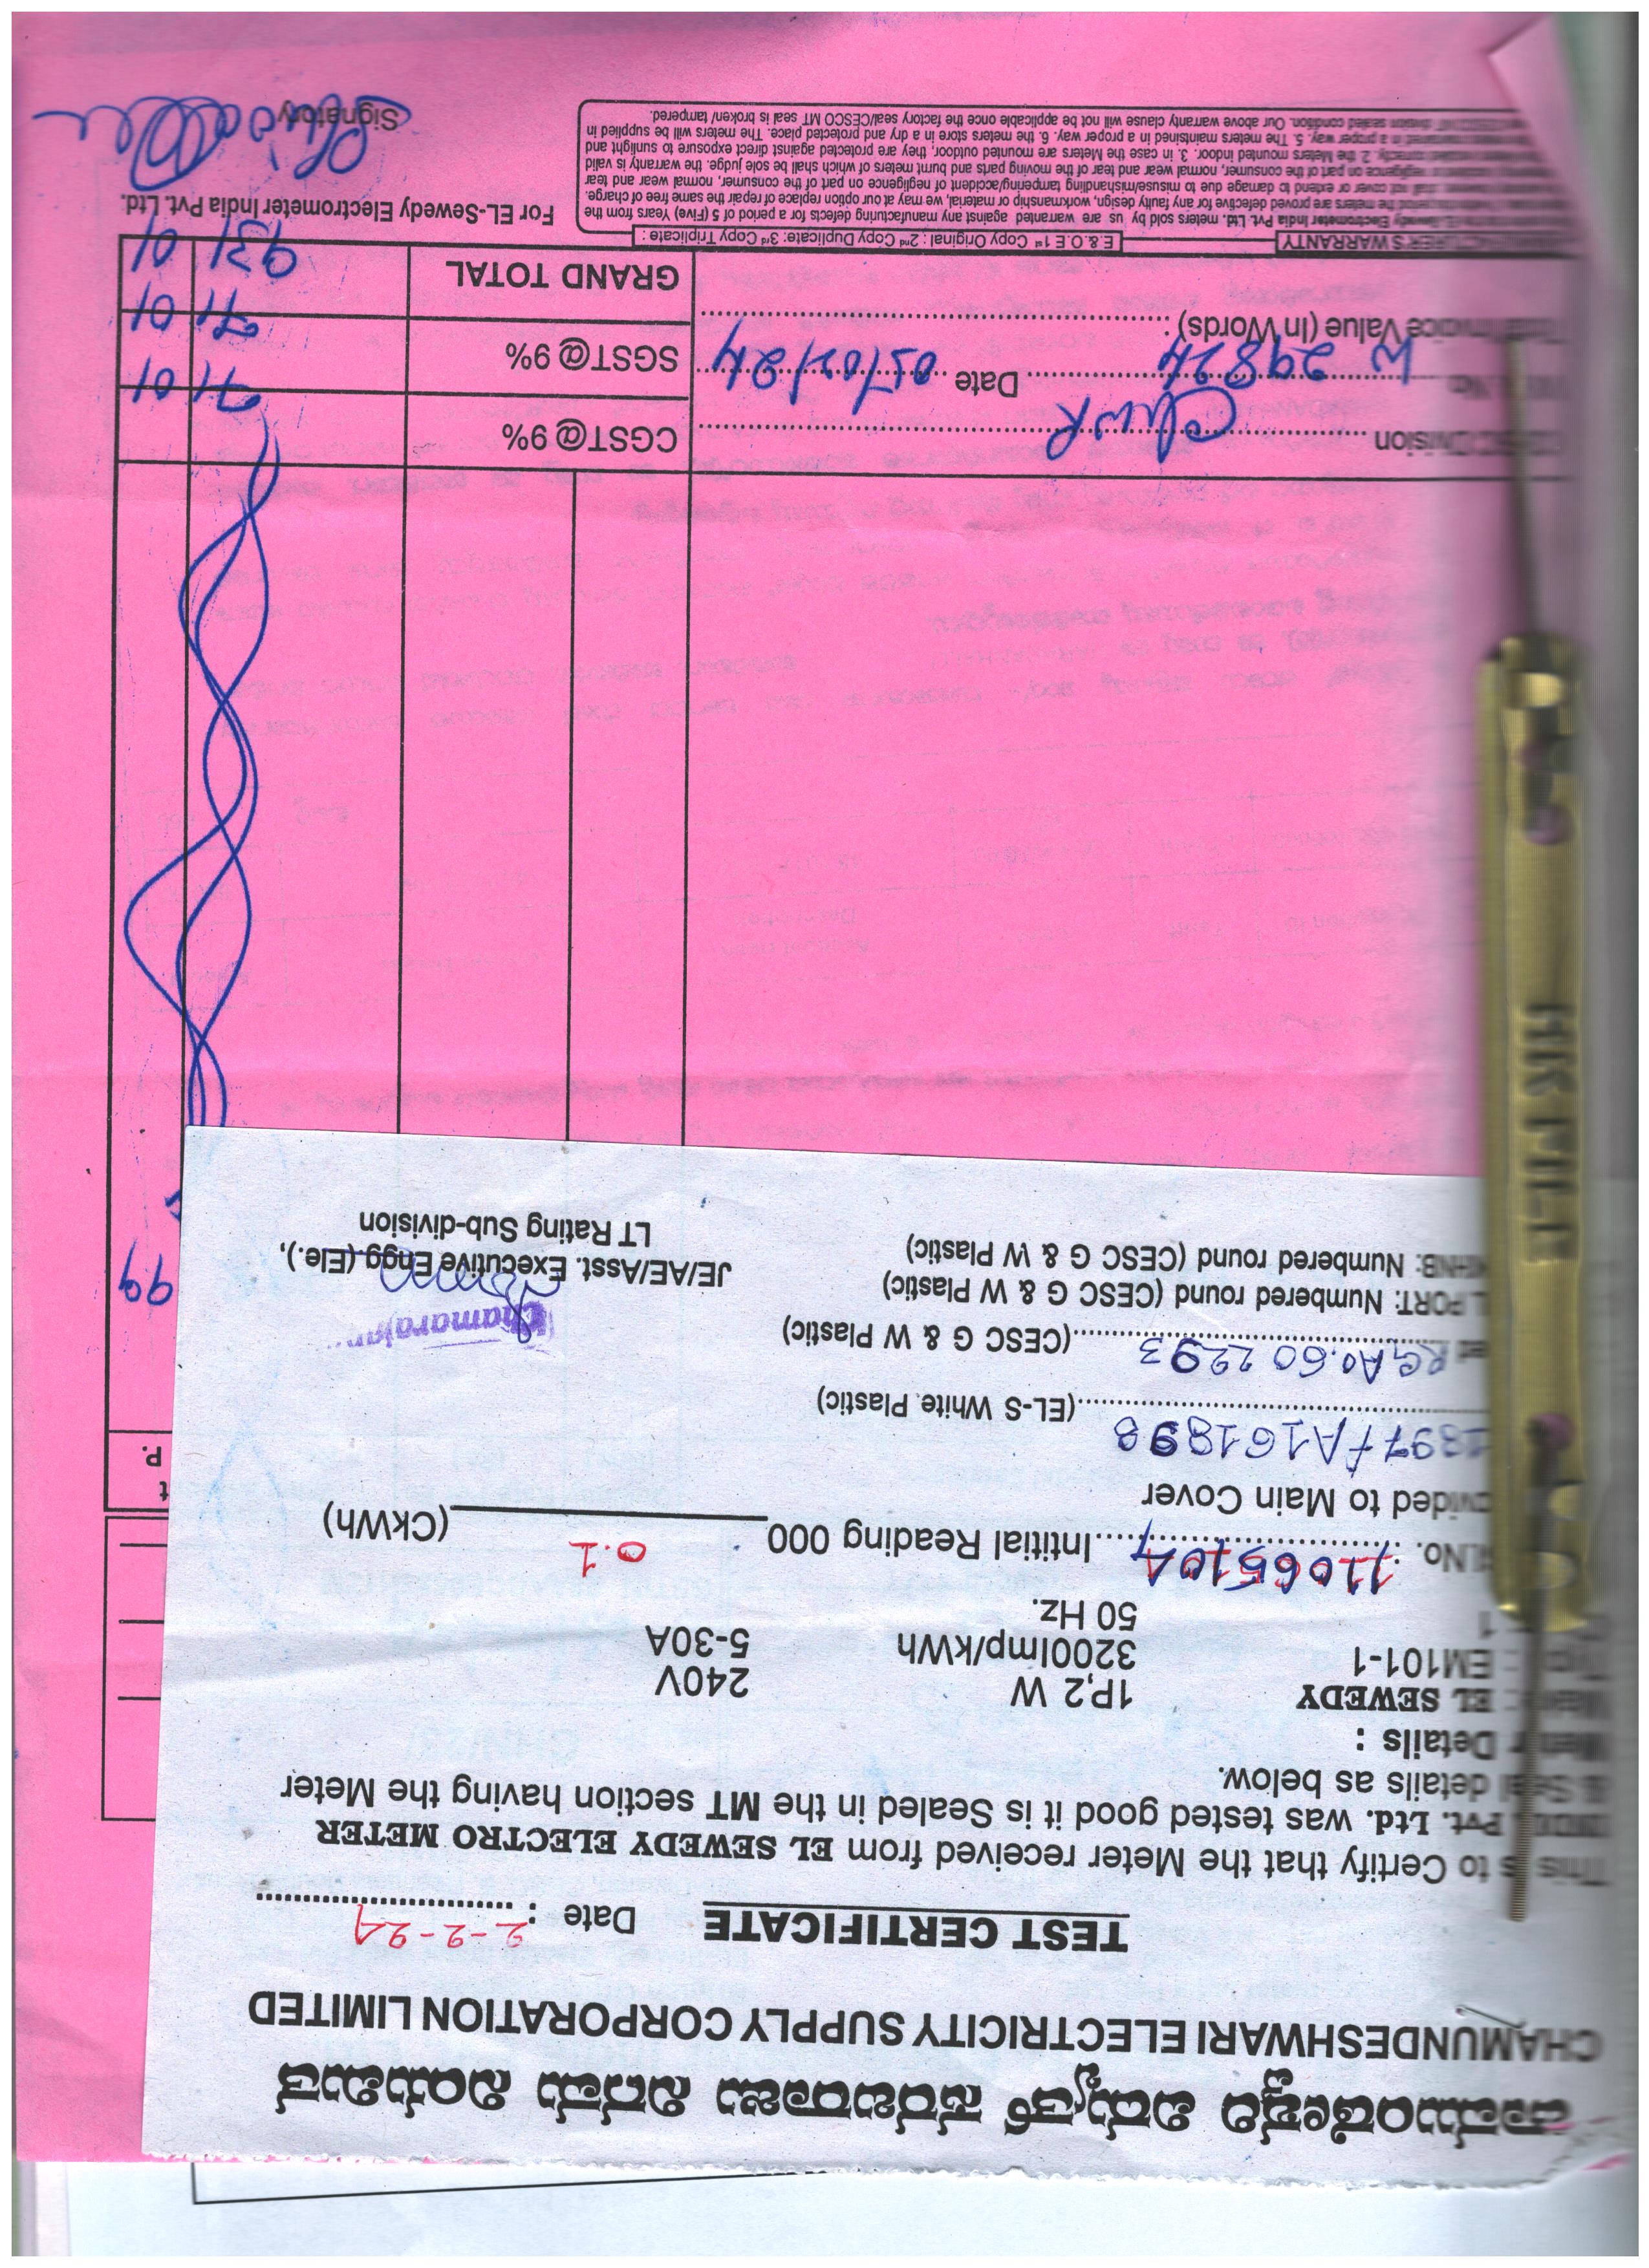 ಚಾಮುಂಡೇಶ್ವರಿ ವಿದ್ಯುತ್ ಸರಬರಾಜು ನಿಗಮ ನಿಯಮಿತ
CHAMUNDESHWARI ELECTRICITY SUPPLY CORPORATION LIMITED
TEST CERTIFICATE Date : 2-2-24
This is to Certify that the Meter received from EL SEWEDY ELECTRO METER
Pvt. Ltd. was tested good it is Sealed in the MT section having the Meter
& Seal details as below.
Meter Details :
EL SEWEDY 1P,2 W 240V
EM101-1 3200Imp/kWh 5-30A
1 50 Hz.
Sl.No. 11065104 Intitial Reading 000 0.1 (CkWh)
to Main Cover
1897 FA161898 (EL-S White Plastic)
RGA0.60 2293 (CESC G & W Plastic)
PORT: Numbered round (CESC G & W Plastic)
Numbered round (CESC G & W Plastic)
Chamarajan
JE/AE/Asst. Executive Engg.(Ele.),
LT Rating Sub-division
t
P.
99
Division ChNR CGST@9% 71 01
29824 Date 05/02/24 SGST@9% 71 01
Total Invoice Value (In Words) : GRAND TOTAL 931 01
WARRANTY E.& O.E 1st Copy Original : 2nd Copy Duplicate: 3rd Copy Triplicate :
Electrometer India Pvt. Ltd. meters sold by us are warranted against any manufacturing defects for a period of 5 (Five) Years from the
the meters are proved defective for any faulty design, workmanship or material, we may at our option replace of repair the same free of charge.
shall not cover or extend to damage due to misuse/mishandling tampering/accident of negligence on part of the consumer, normal wear and tear
or negligence on part of the consumer, normal wear and tear of the moving parts and burnt meters of which shall be sole judge. the warranty is valid
correctly. 2. the Meters mounted indoor. 3. in case the Meters are mounted outdoor, they are protected against direct exposure to sunlight and
in a proper way. 5. The meters maintsined in a proper way. 6. the meters store in a dry and protected place. The meters will be supplied in
division sealed condition. Our above warranty clause will not be applicable once the factory seal/CESCO MT seal is broken/ tampered.
For EL-Sewedy Electrometer India Pvt. Ltd.
Signatory